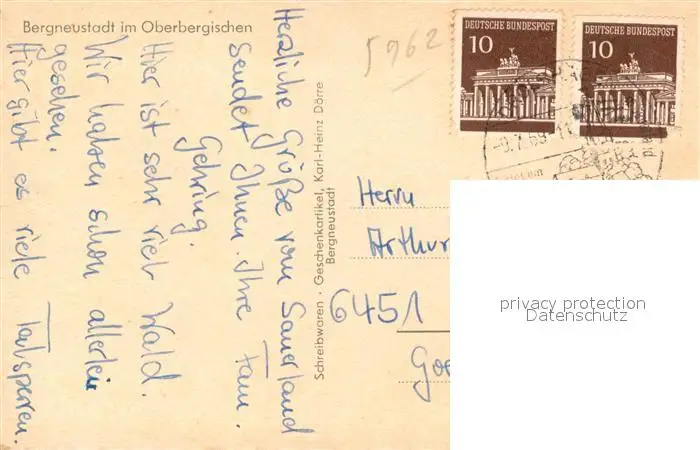 Bergneustadt im Oberbergischen
5962
DEUTSCHE BUNDESPOST
10
DEUTSCHE BUNDESPOST
10
Herzliche Grüße vom Sauerland
sendet Ihnen. Ihre Fam.
Gehring.
Hier ist sehr viel Wald.
Wir haben schon allerlei
gesehen.
Hier gibt es viele Talsperren.
Schreibwaren · Geschenkartikel, Karl-Heinz Dörre
Bergneustadt
Herrn
Arthur
6451
privacy protection
Datenschutz